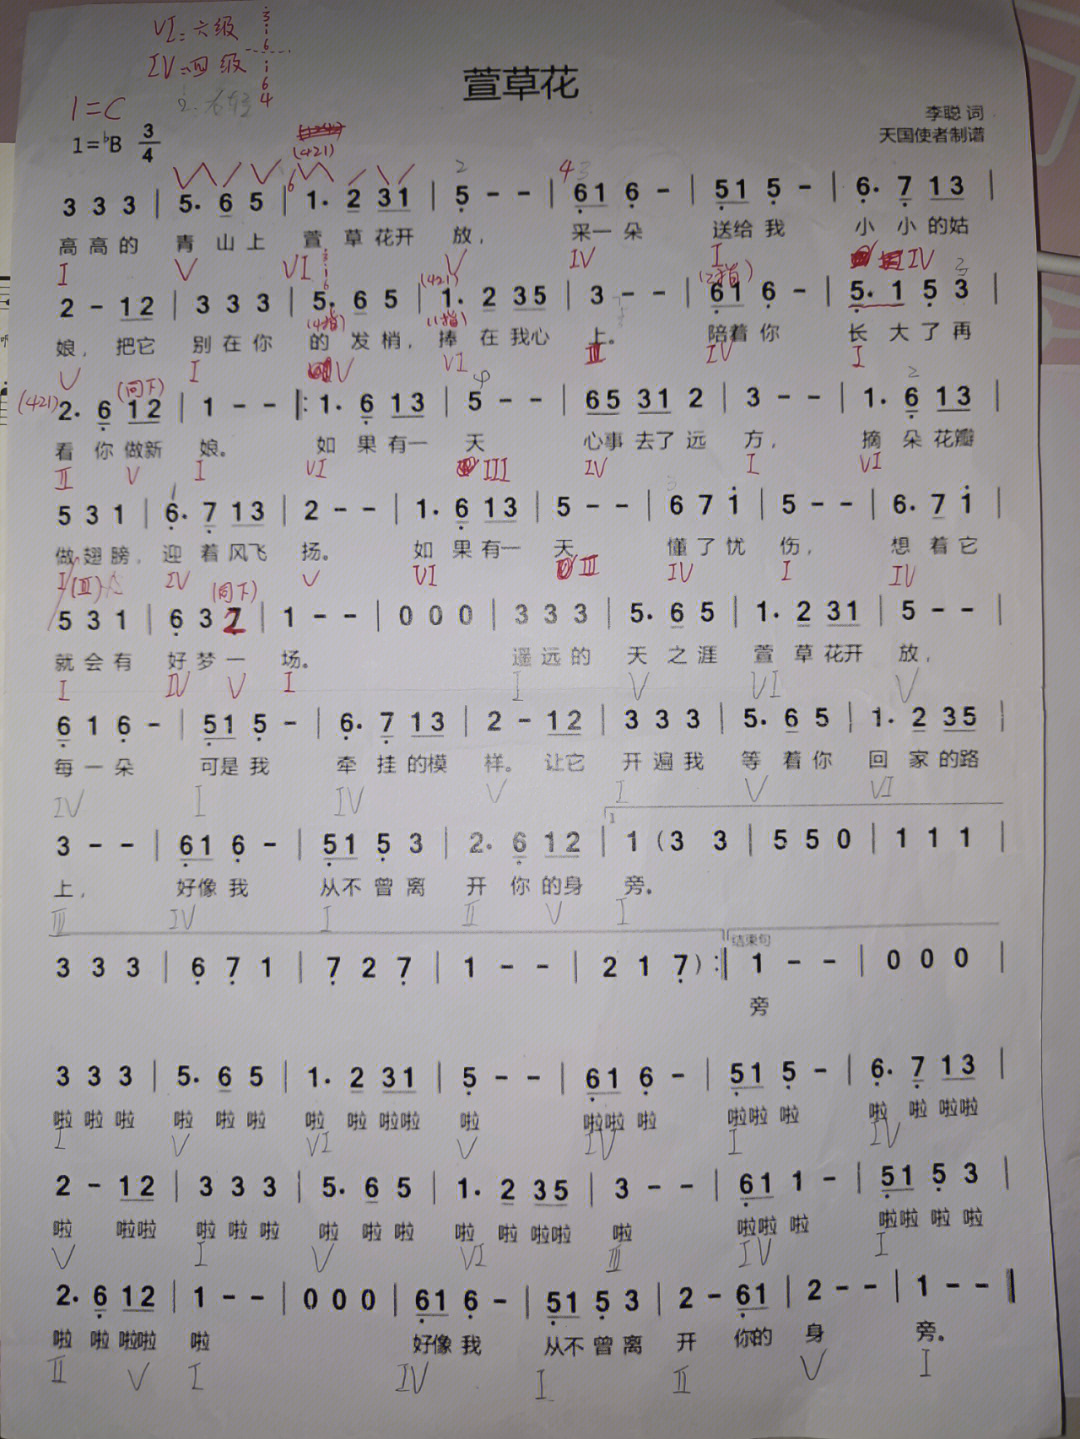 VI=六级 3 i 6
IV=四级 i 6 4
萱草花
1=C
李聪 词
1=♭B 3/4
天国使者制谱
(421)
3 3 3 | 5. 6 5 | 1. 2 31 | 5 - - | 61 6 - | 51 5 - | 6. 7 13 |
高高的 青山上 萱草花开 放， 采一朵 送给我 小小的姑
I V VI V IV I IV
(421) (2指)
2 - 12 | 3 3 3 | 5. 6 5 | 1. 2 35 | 3 - - | 61 6 - | 5. 1 5 3 |
(4指) (1指)
娘，把它 别在你 的发梢，捧在我心 上。 陪着你 长大了再
V I V VI III IV I
(421) (同下)
2. 6 12 | 1 - - |: 1. 6 13 | 5 - - | 65 31 2 | 3 - - | 1. 6 13 |
看你做新 娘。 如果有一 天 心事去了远 方， 摘朵花瓣
II V I VI III IV I VI
5 3 1 | 6. 7 13 | 2 - - | 1. 6 13 | 5 - - | 6 7 i | 5 - - | 6. 7 i |
做翅膀，迎着风飞 扬。 如果有一 天 懂了忧 伤， 想着它
I (III) IV V VI III IV I IV
(同下)
5 3 1 | 6 3 2 | 1 - - | 0 0 0 | 3 3 3 | 5. 6 5 | 1. 2 31 | 5 - - |
就会有 好梦一 场。 遥远的 天之涯 萱草花开 放，
I IV V I I V VI V
6 1 6 - | 51 5 - | 6. 7 13 | 2 - 12 | 3 3 3 | 5. 6 5 | 1. 2 35 |
每一朵 可是我 牵挂的模 样。让它 开遍我 等着你 回家的路
IV I IV V I V VI
3 - - | 61 6 - | 51 5 3 | 2. 6 12 | 1 (3 3 | 5 5 0 | 1 1 1 |
上， 好像我 从不曾离 开你的身 旁。
III IV I II V I
结束句
3 3 3 | 6 7 1 | 7 2 7 | 1 - - | 2 1 7) :| 1 - - | 0 0 0 |
旁
3 3 3 | 5. 6 5 | 1. 2 31 | 5 - - | 61 6 - | 51 5 - | 6. 7 13 |
啦啦啦 啦啦啦 啦啦啦啦 啦 啦啦啦 啦啦啦 啦啦啦啦
I V VI V IV I IV
2 - 12 | 3 3 3 | 5. 6 5 | 1. 2 35 | 3 - - | 61 1 - | 51 5 3 |
啦 啦啦 啦啦啦 啦啦啦 啦啦啦啦 啦 啦啦啦 啦啦啦啦
V I V VI III IV I
2. 6 12 | 1 - - | 0 0 0 | 61 6 - | 51 5 3 | 2 - 61 | 2 - - | 1 - - ‖
啦啦啦啦 啦 好像我 从不曾离 开 你的 身 旁。
II V I IV I II V I